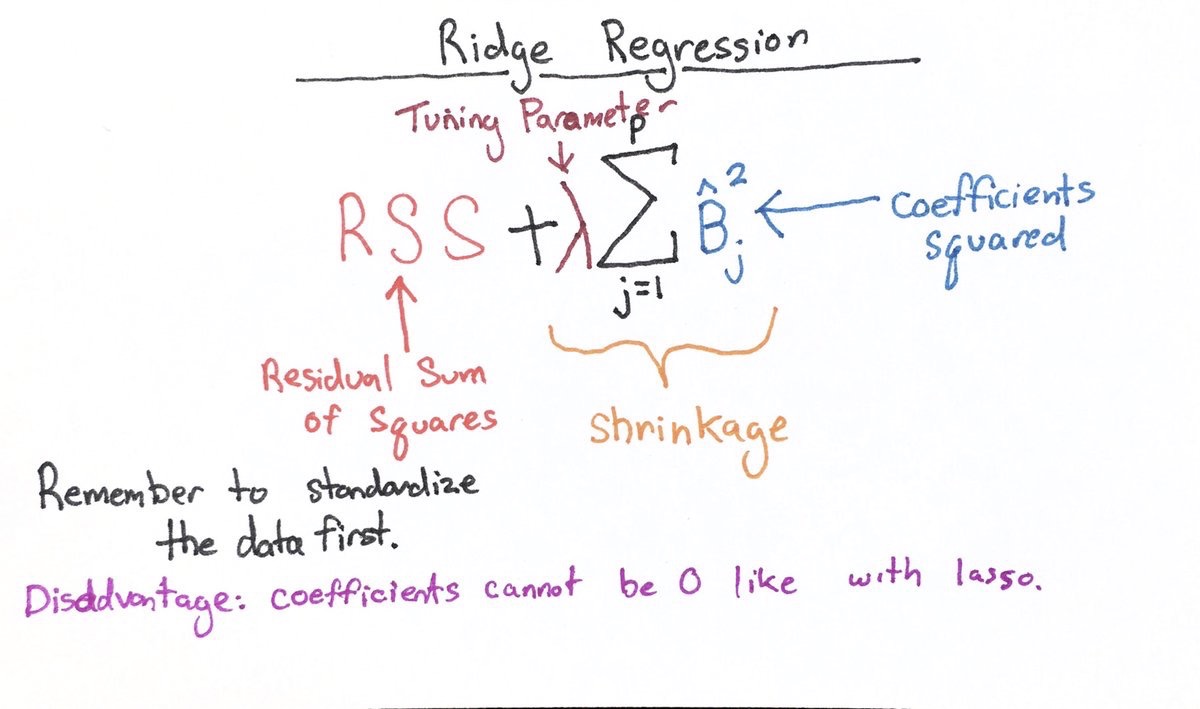 Ridge Regression
Tuning Parameter
p
RSS + λ ∑ B̂j²
j=1
Coefficients
Squared
Residual Sum
of Squares
Shrinkage
Remember to standardize
the data first.
Disddvantage: coefficients cannot be 0 like with lasso.